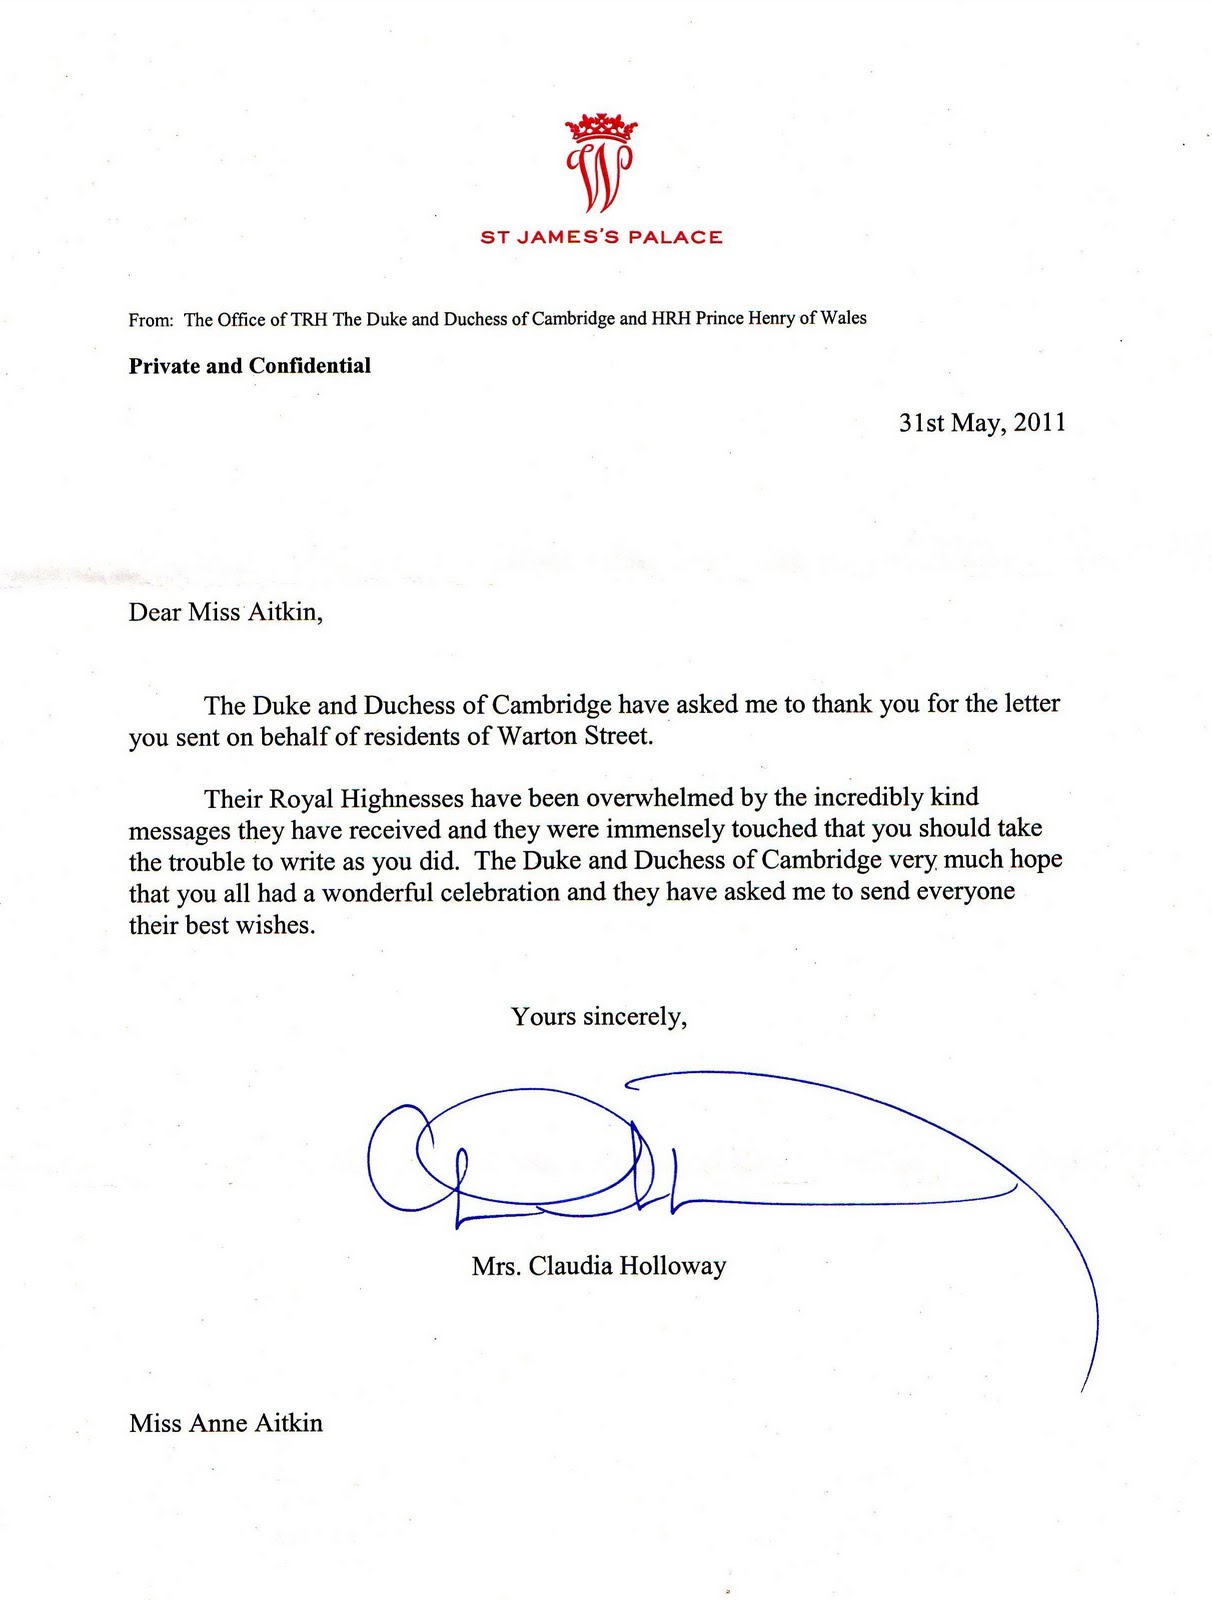 W
ST JAMES'S PALACE
From: The Office of TRH The Duke and Duchess of Cambridge and HRH Prince Henry of Wales
Private and Confidential
31st May, 2011
Dear Miss Aitkin,
The Duke and Duchess of Cambridge have asked me to thank you for the letter
you sent on behalf of residents of Warton Street.
Their Royal Highnesses have been overwhelmed by the incredibly kind
messages they have received and they were immensely touched that you should take
the trouble to write as you did. The Duke and Duchess of Cambridge very much hope
that you all had a wonderful celebration and they have asked me to send everyone
their best wishes.
Yours sincerely,
Mrs. Claudia Holloway
Miss Anne Aitkin